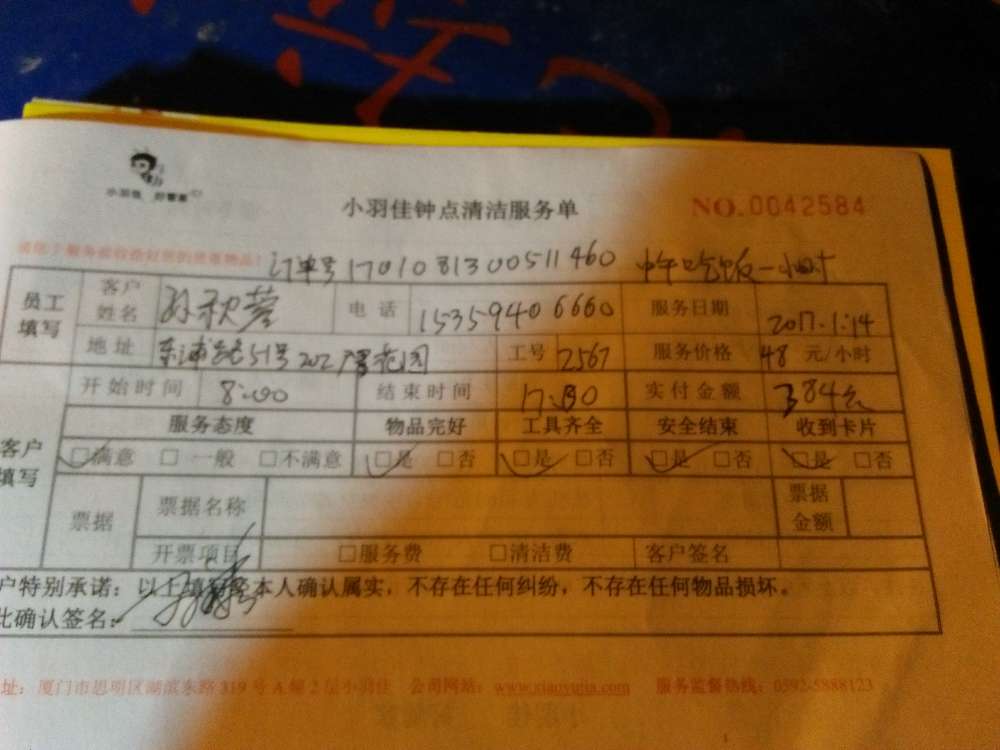 小羽佳 好管家
小羽佳钟点清洁服务单 NO.0042584
订单号1701081300511460 中午吃饭一小时
员工填写 客户姓名 孙秋蓉 电话 15359406660 服务日期 2017.1.14
地址 51号202 花园 工号 2567 服务价格 48 元/小时
开始时间 8:00 结束时间 17:00 实付金额 384元
客户填写 服务态度 物品完好 工具齐全 安全结束 收到卡片
□满意 □一般 □不满意 □是 □否 □是 □否 □是 □否 □是 □否
票据 票据名称 票据金额
开票项目 □服务费 □清洁费 客户签名
户特别承诺：以上填写经本人确认属实，不存在任何纠纷，不存在任何物品损坏。
此确认签名：
址：厦门市思明区湖滨东路319号A幢2层小羽佳 公司网站：www.xiaoyujia.com 服务监督热线：0592-5888123